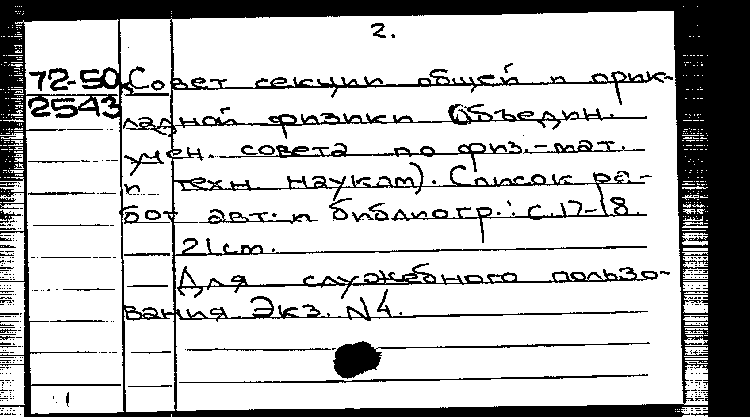 2.
72-50 Совет секции общей и прик-
2543 ладной физики Объедин.
учен. совета по физ.-мат.
и техн. наукам). Список ра-
бот авт. и библиогр.: с. 17-18.
21 cm.
Для служебного пользо-
вания Экз. N4.